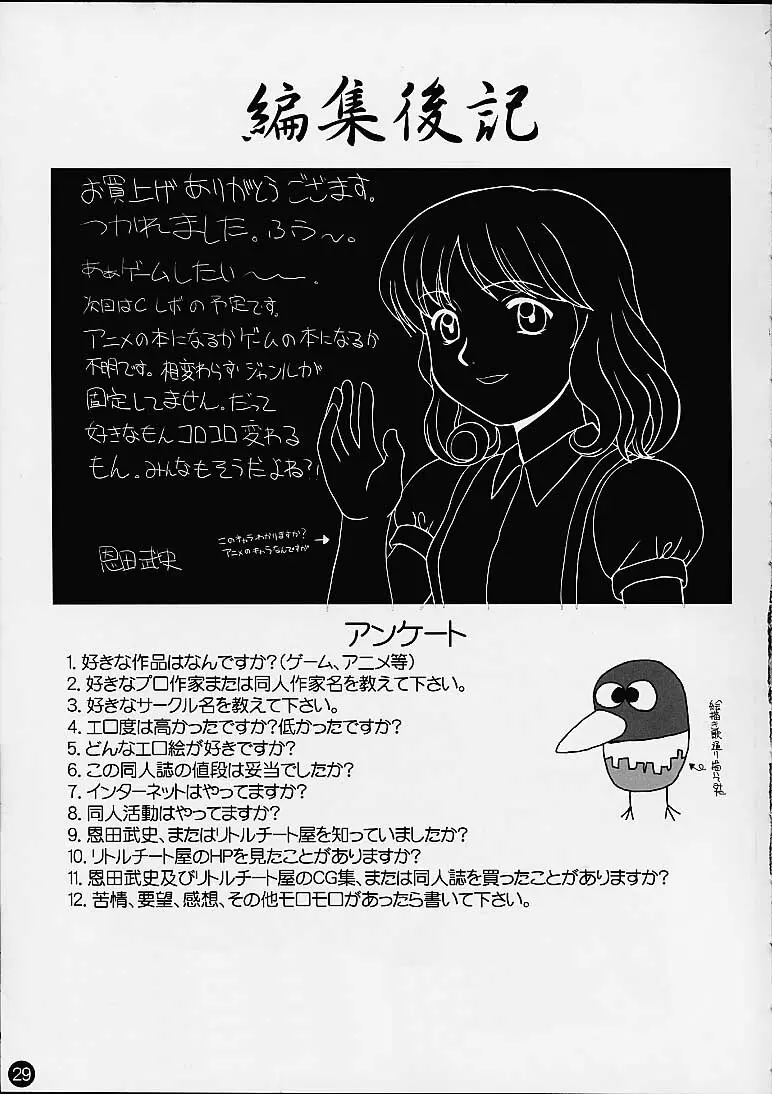 編集後記
お買上げありがとうございます。
つかれました。ふう〜。
あぁゲームしたい〜〜。
次回はCレボの予定です。
アニメの本になるかゲームの本になるか
不明です。相変わらずジャンルが
固定してません。だって
好きなもんコロコロ変わる
もん。みんなもそうだよね?!
このキャラわかりますか?
アニメのキャラなんですが
恩田武史
アンケート
1. 好きな作品はなんですか?(ゲーム、アニメ等)
2. 好きなプロ作家または同人作家名を教えて下さい。
3. 好きなサークル名を教えて下さい。
4. エロ度は高かったですか?低かったですか?
5. どんなエロ絵が好きですか?
6. この同人誌の値段は妥当でしたか?
7. インターネットはやってますか?
8. 同人活動はやってますか?
9. 恩田武史、またはリトルチート屋を知っていましたか?
10. リトルチート屋のHPを見たことがありますか?
11. 恩田武史及びリトルチート屋のCG集、または同人誌を買ったことがありますか?
12. 苦情、要望、感想、その他モロモロがあったら書いて下さい。
絵描き歌通り
29